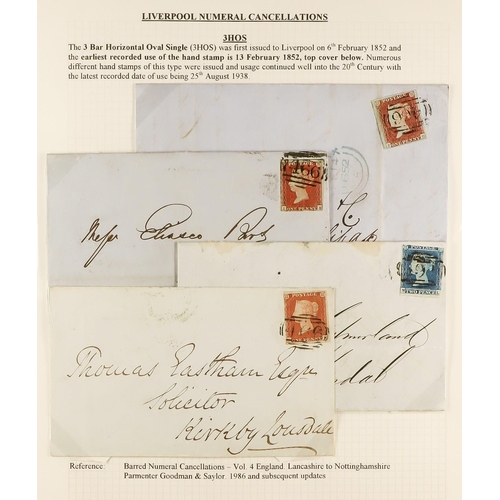 LIVERPOOL NUMERAL CANCELLATIONS
3HOS
The 3 Bar Horizontal Oval Single (3HOS) was first issued to Liverpool on 6th February 1852 and
the earliest recorded use of the hand stamp is 13 February 1852, top cover below. Numerous
different hand stamps of this type were issued and usage continued well into the 20th Century with
the latest recorded date of use being 25th August 1938.
POSTAGE
ONE PENNY
POSTAGE
Messrs
POSTAGE
TWO PENCE
POSTAGE
Thomas Eastham Esqre
Solicitor
Kirkby Lonsdale
Reference Barred Numeral Cancellations – Vol. 4 England. Lancashire to Nottinghamshire
Parmenter Goodman & Saylor. 1986 and subsequent updates